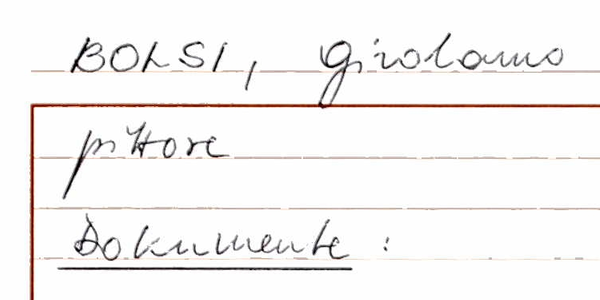 BOLSI, Girolamo
pittore
Dokumente :